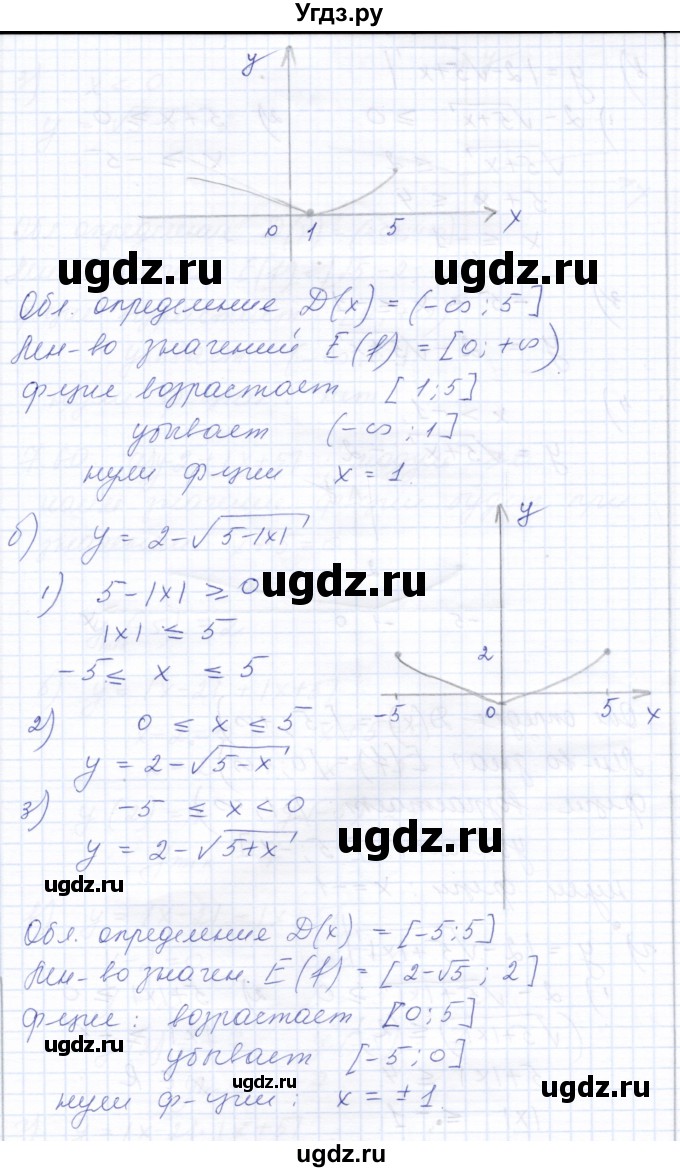 Угдз.ру
y
0 1 5 x
ugdz.ru ugdz.ru
Обл. определение D(x) = (-∞; 5]
Мн-во значений E(f) = [0; +∞)
ф-ция возрастает [1; 5]
убывает (-∞; 1]
нули ф-ции x = 1.
б) y = 2 - √(5-|x|)
y
1) 5 - |x| ≥ 0
ugdz.ru
|x| ≤ 5
-5 ≤ x ≤ 5
2
-5 0 5 x
2) 0 ≤ x ≤ 5
y = 2 - √(5-x)
3) -5 ≤ x < 0
ugdz.ru
y = 2 - √(5+x)
ugdz.ru
Обл. определение D(x) = [-5; 5]
Мн-во значен. E(f) = [2-√5; 2]
ф-ция: возрастает [0; 5]
ugdz.ru
убывает [-5; 0]
ugdz.ru ugdz.ru
нули ф-ции: x = ±1
ugdz.ru